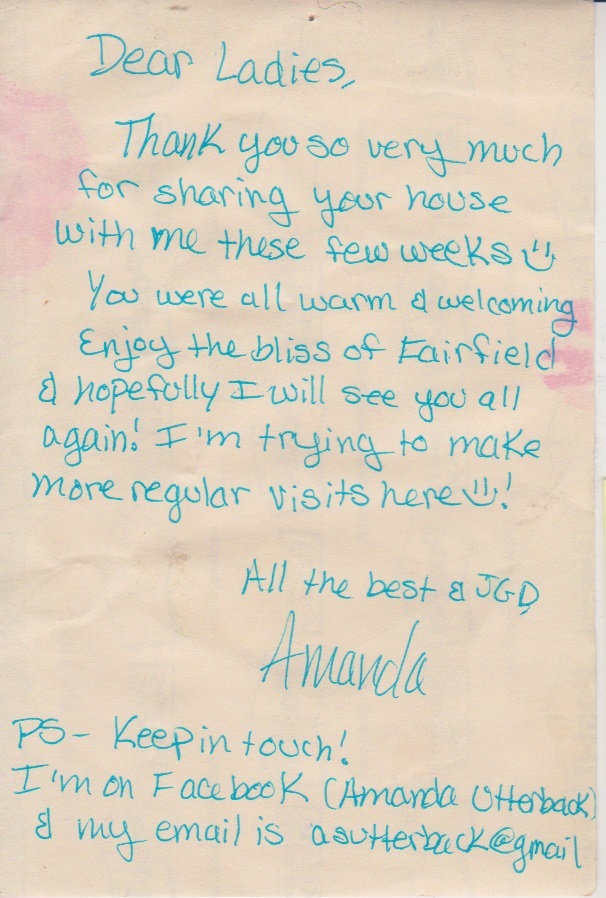 Dear Ladies,
Thank you so very much
for sharing your house
with me these few weeks
You were all warm & welcoming
Enjoy the bliss of Fairfield
& hopefully I will see you all
again! I'm trying to make
more regular visits here !
All the best & JGD
Amanda
PS - Keep in touch!
I'm on Facebook (Amanda Utterback)
& my email is asutterback@gmail